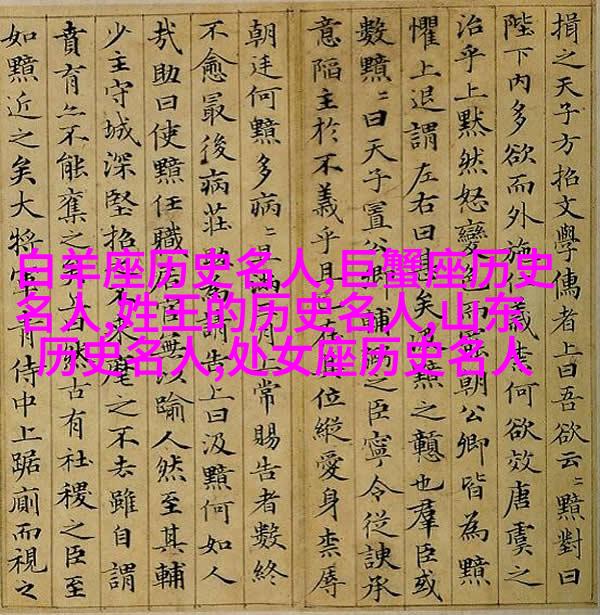 白羊座历史名人,巨蟹座历史
名人,姓王的历史名人,山东
历史名人,处女座历史名人
揖之天子方招文學儒者上曰吾欲云〻黯對曰
陛下內多欲而外施仁義柰何欲效唐虞之
治乎上黙然怒變色而罷朝公卿皆為黯
懼上退謂左右曰甚矣汲黯之戇也羣臣或
數黯〻曰天子置公卿輔弼之臣寧令從諛承
意陷主於不義乎且在其位縱愛身柰辱
朝廷何黯多病〻且滿三月上常賜告者數終
不愈最後病莊助為請告上曰汲黯何如人
哉助曰使黯任職居官無以踰人然至其輔
少主守城深堅招之不來麾之不去雖自謂
賁育亦不能奪之矣上曰然古有社稷之臣至
如黯近之矣大將軍青侍中上踞廁而視之